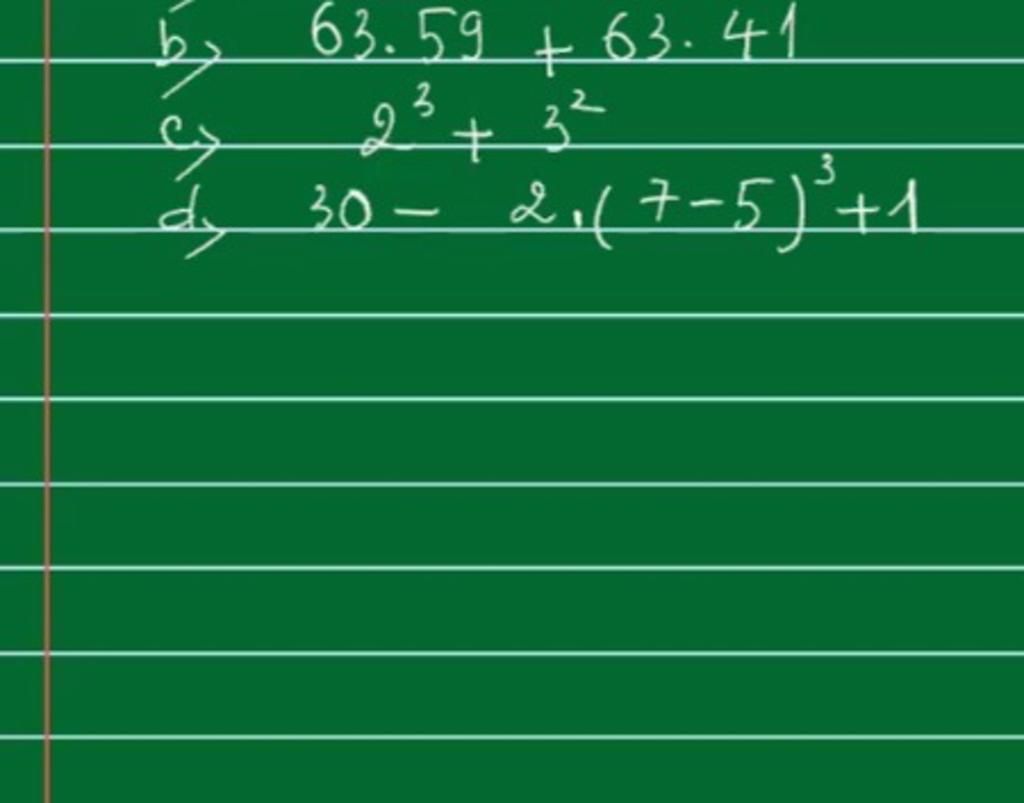 b, 63.59 + 63.41
c, 2³ + 3²
d, 30 - 2.(7-5)³+1